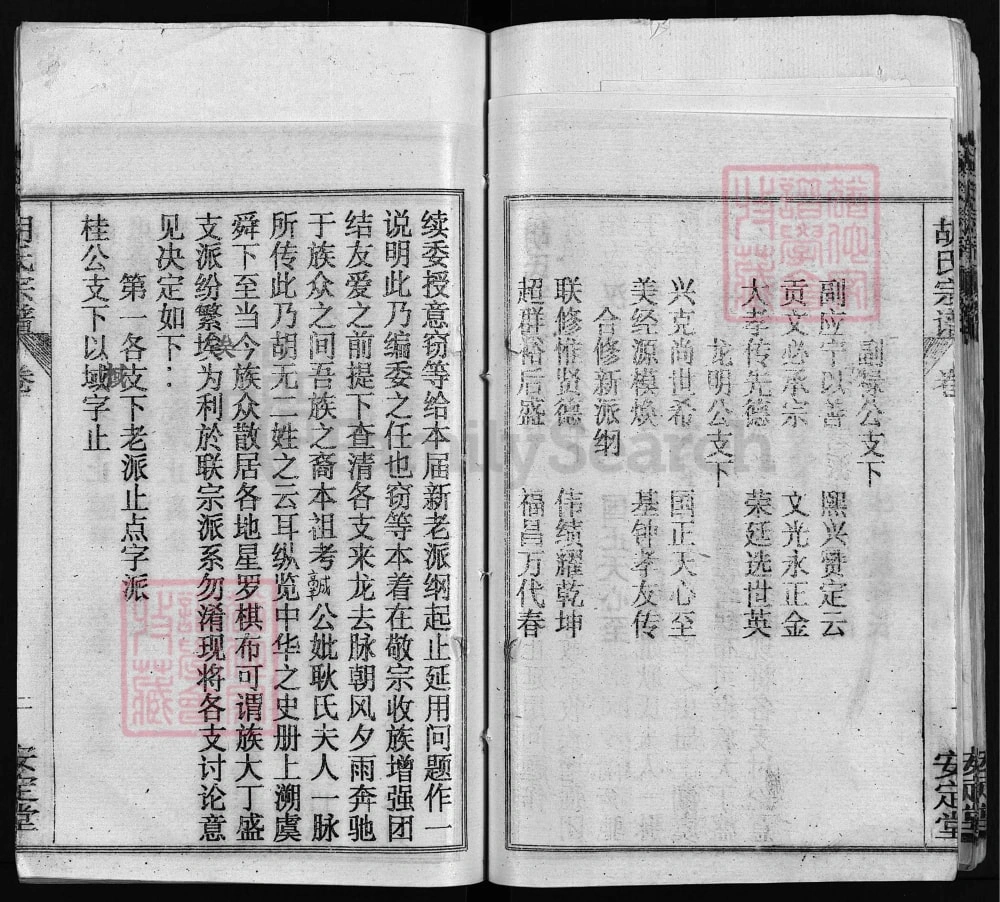 胡氏宗谱
卷
安定堂
副禄公支下
副应宁以善
熙兴赞定云
贡文必承宗
文光永正金
大孝传先德
荣廷选世英
龙明公支下
兴克尚世希
国正天心至
美经源模焕
基钟孝友传
合修新派纲
联修惟贤德
伟绩耀乾坤
超群裕后盛
福昌万代春
续委授意窃等给本届新老派纲起止延用问题作一
说明此乃编委之任也窃等本着在敬宗收族增强团
结友爱之前提下查清各支来龙去脉朝风夕雨奔驰
于族众之间吾族之裔本祖考諴公妣耿氏夫人一脉
所传此乃胡无二姓之云耳纵览中华之史册上溯虞
舜下至当今族众散居各地星罗棋布可谓族大丁盛
支派纷繁埃为利於联宗派系勿淆现将各支讨论意
见决定如下：
第一各支下老派止点字派
桂公支下以域字止
胡氏宗谱
卷
一
安定堂
FamilySearch